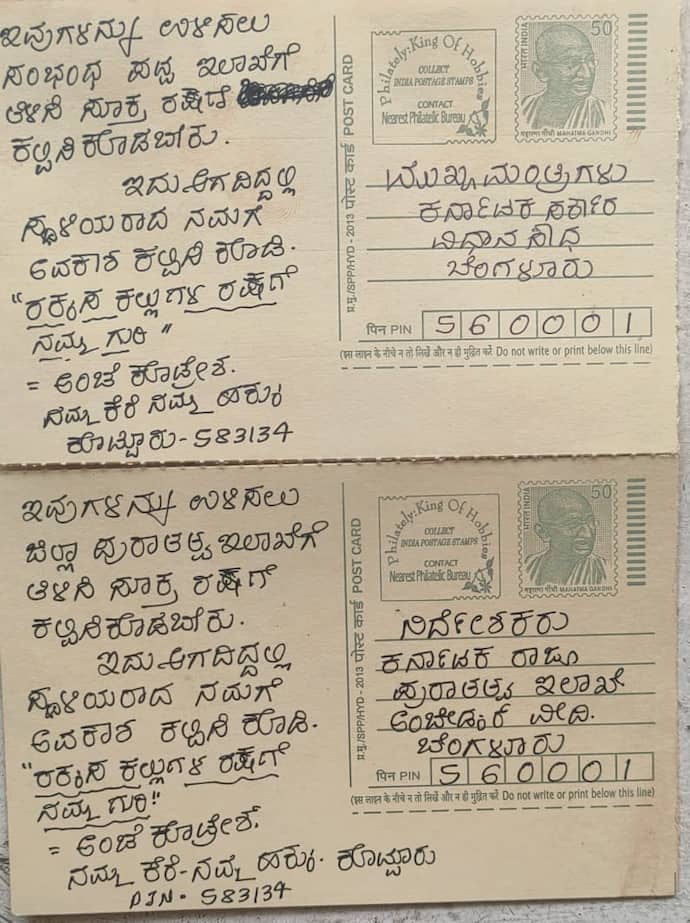 ಇವುಗಳನ್ನು ಉಳಿಸಲು
ಸಂಭಂಧ ಪಟ್ಟ ಇಲಾಖೆಗೆ
ತಿಳಿಸಿ ಸೂಕ್ತ ರಕ್ಷಣೆ
ಕಲ್ಪಿಸಿಕೊಡಬೇಕು.
ಇದು ಆಗದಿದ್ದಲ್ಲಿ
ಸ್ಥಳೀಯರಾದ ನಮಗೆ
ಅವಕಾಶ ಕಲ್ಪಿಸಿ ಕೊಡಿ.
"ರಕ್ಕಸ ಕಲ್ಲುಗಳ ರಕ್ಷಣೆ
ನಮ್ಮ ಗುರಿ"
= ಅಂಚೆ ಕೊಟ್ರೇಶ.
ನಮ್ಮ ಕೆರೆ ನಮ್ಮ ಹಕ್ಕು
ಕೊಟ್ಟೂರು-583134
Philately: King Of Hobbies
COLLECT
INDIA POSTAGE STAMPS
CONTACT
Nearest Philatelic Bureau
भारत INDIA
50
महात्मा गाँधी MAHATMA GANDHI
प्र.मु./SPP/HYD - 2013 पोस्ट कार्ड POST CARD
ಮುಖ್ಯಮಂತ್ರಿಗಳು
ಕರ್ನಾಟಕ ಸರ್ಕಾರ
ವಿಧಾನ ಸೌಧ
ಬೆಂಗಳೂರು
पिन PIN 560001
(इस लाइन के नीचे न तो लिखें और न ही मुद्रित करें Do not write or print below this line)
ಇವುಗಳನ್ನು ಉಳಿಸಲು
ಜಿಲ್ಲಾ ಪುರಾತತ್ವ ಇಲಾಖೆಗೆ
ತಿಳಿಸಿ ಸೂಕ್ತ ರಕ್ಷಣೆ
ಕಲ್ಪಿಸಿಕೊಡಬೇಕು.
ಇದು ಆಗದಿದ್ದಲ್ಲಿ
ಸ್ಥಳೀಯರಾದ ನಮಗೆ
ಅವಕಾಶ ಕಲ್ಪಿಸಿ ಕೊಡಿ.
"ರಕ್ಕಸ ಕಲ್ಲುಗಳ ರಕ್ಷಣೆ
ನಮ್ಮ ಗುರಿ!"
= ಅಂಚೆ ಕೊಟ್ರೇಶ.
ನಮ್ಮ ಕೆರೆ-ನಮ್ಮ ಹಕ್ಕು. ಕೊಟ್ಟೂರು
PIN. 583134
Philately: King Of Hobbies
COLLECT
INDIA POSTAGE STAMPS
CONTACT
Nearest Philatelic Bureau
भारत INDIA
50
महात्मा गाँधी MAHATMA GANDHI
प्र.मु./SPP/HYD - 2013 पोस्ट कार्ड POST CARD
ನಿರ್ದೇಶಕರು
ಕರ್ನಾಟಕ ರಾಜ್ಯ
ಪುರಾತತ್ವ ಇಲಾಖೆ
ಅಂಬೇಡ್ಕರ ವೀದಿ.
ಬೆಂಗಳೂರು
पिन PIN 560001
(इस लाइन के नीचे न तो लिखें और न ही मुद्रित करें Do not write or print below this line)